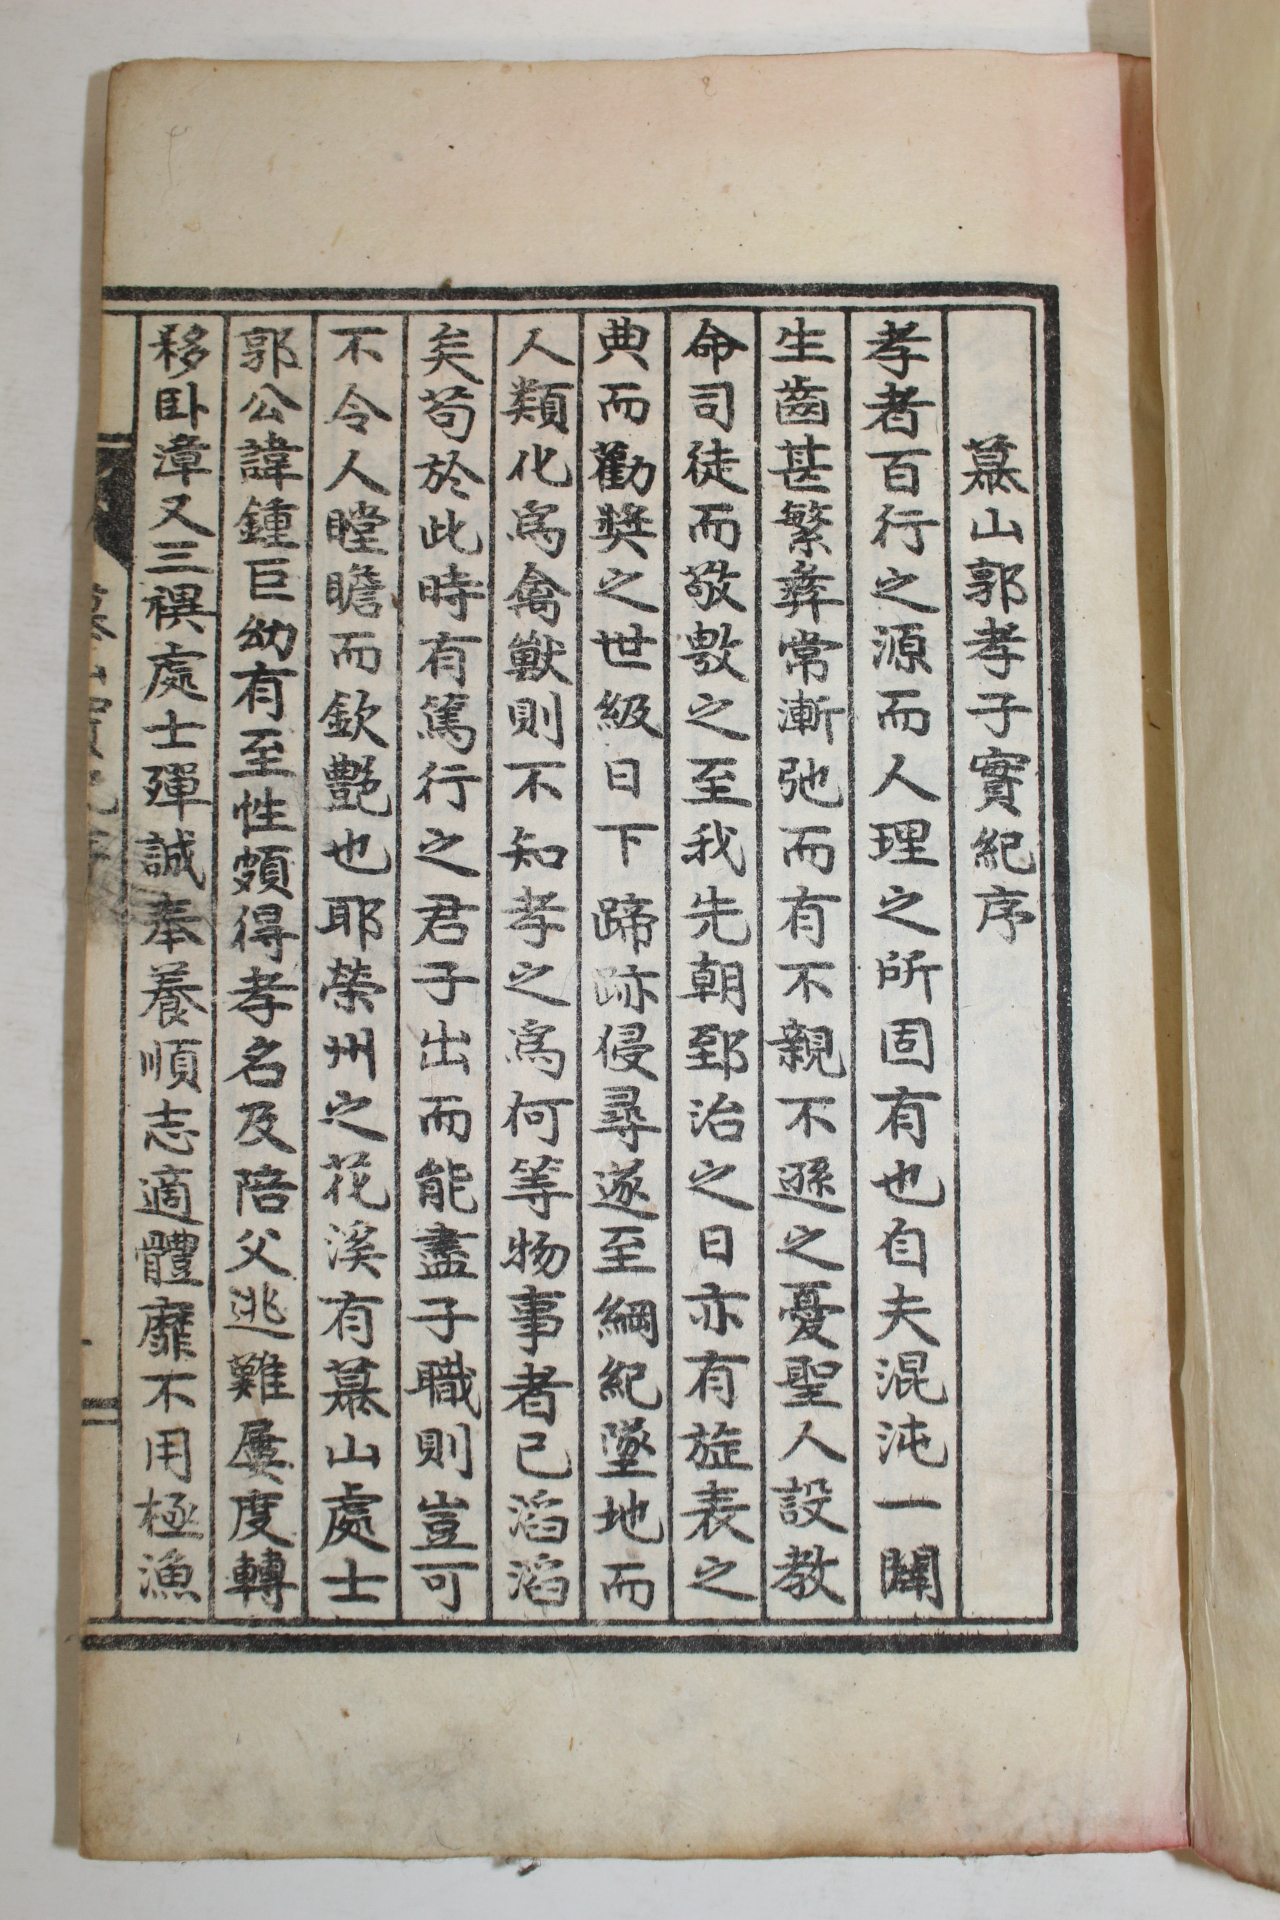 慕山郭孝子實紀序
孝者百行之源而人理之所固有也自夫混沌一闢
生齒甚繁彛常漸弛而有不親不遜之憂聖人設教
命司徒而敬敷之至我先朝郅治之日亦有旌表之
典而勸奬之世級日下蹄跡侵尋遂至綱紀墜地而
人類化爲禽獸則不知孝之爲何等物事者已滔滔
矣苟於此時有篤行之君子出而能盡子職則豈可
不令人瞠瞻而欽艶也耶榮州之花溪有慕山處士
郭公諱鍾巨幼有至性頗得孝名及陪父逃難屢度轉
移卧漳又三禩處士殫誠奉養順志適體靡不用極漁